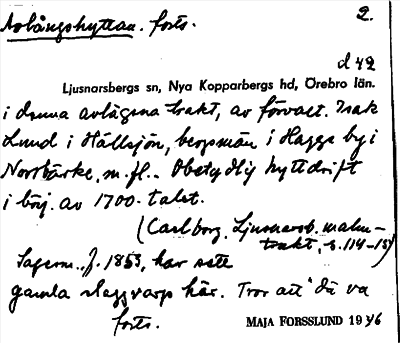 Avlångshyttan. forts. 2.
d 42
Ljusnarsbergs sn, Nya Kopparbergs hd, Örebro län.
i denna avlägsna trakt, av förvalt. Isak
Lund i Hällsjön, bergsmän i Hagge by i
Norrbärke, m. fl.. Obetydlig hyttdrift
i börj. av 1700-talet.
(Carlborg. Ljusnarsb. malm-
trakt, s. 114-15)
Sagesm. f. 1853, har sett
gamla slaggvarp här. Tror att "dä va
forts.
MAJA FORSSLUND 1946